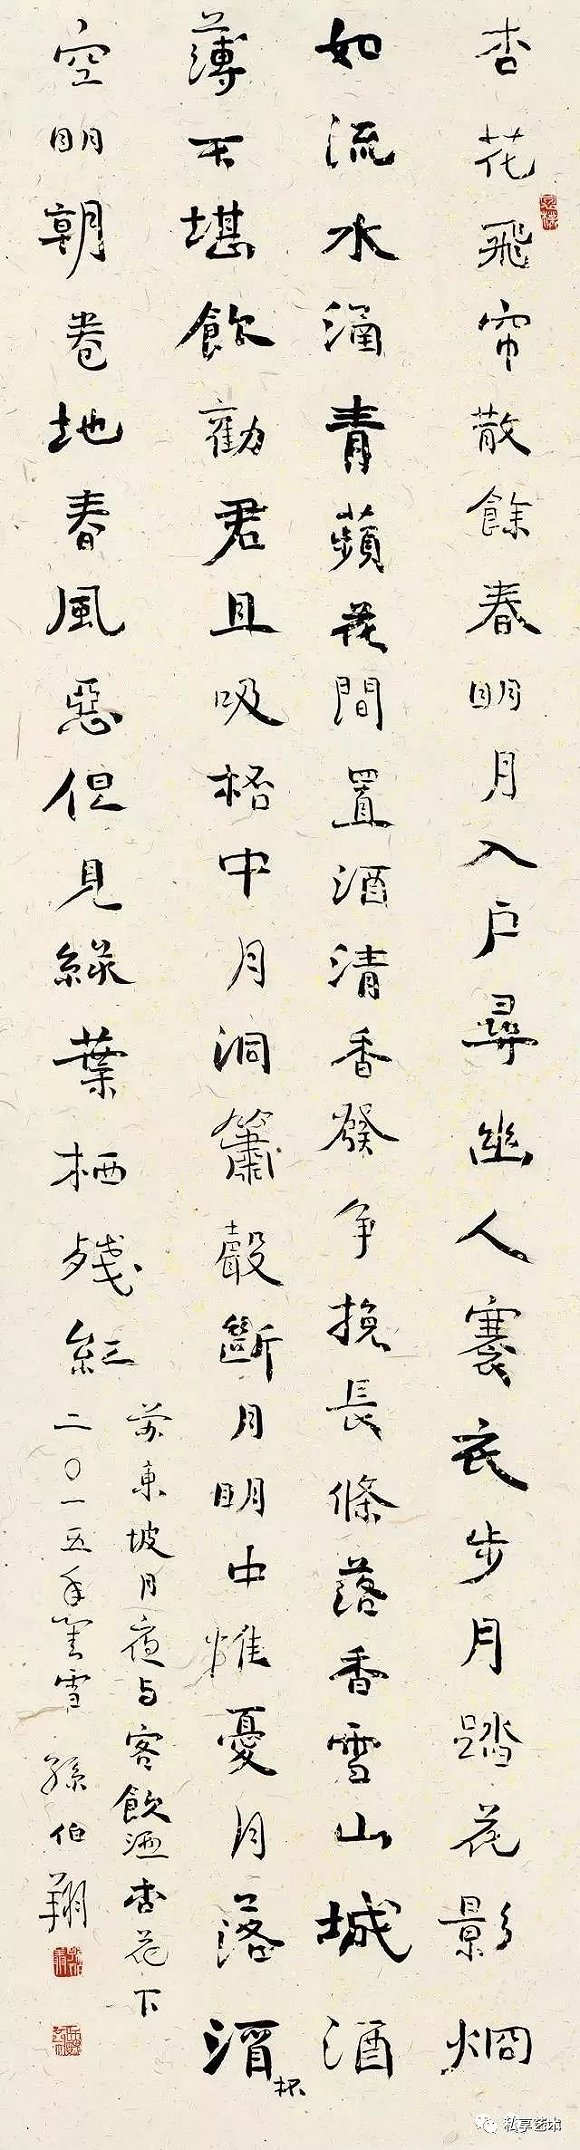 杏花飛帘散餘春明月入户尋幽人褰衣步月踏花影炯
如流水涵青蘋花間置酒清香發争挽長條落香雪山城酒
薄不堪飲勸君且吸桮中月洞簫聲斷月明中惟憂月落酒杯
空明朝卷地春風惡但見緑葉栖殘紅
蘇東坡月夜与客飲酒杏花下
二〇一五年雪 孫伯翔
私享艺术